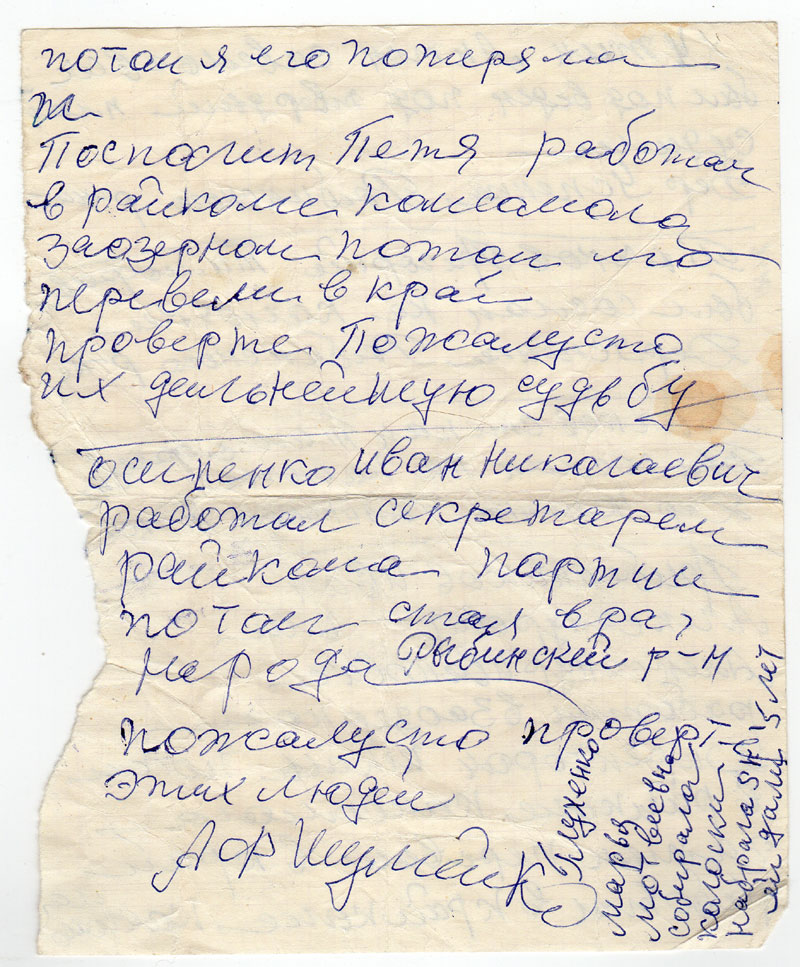 потом я его потеряла
ж
Поспалит Петя работал
в райкоме комсамола
заозерном потом его
перевели в край
проверте Пожалусто
их дальнейшую судьбу
Осиренко Иван Никагаевич
работал секретарем
райкома партии
потом стал враг
народа Рыбинский р-н
пожалусто проверт
этих людей
АФ Шумейк
Глухенко
Марья
Мотвеевна
собирала
калоски
набрала 5 кг
ей дали 5 лет